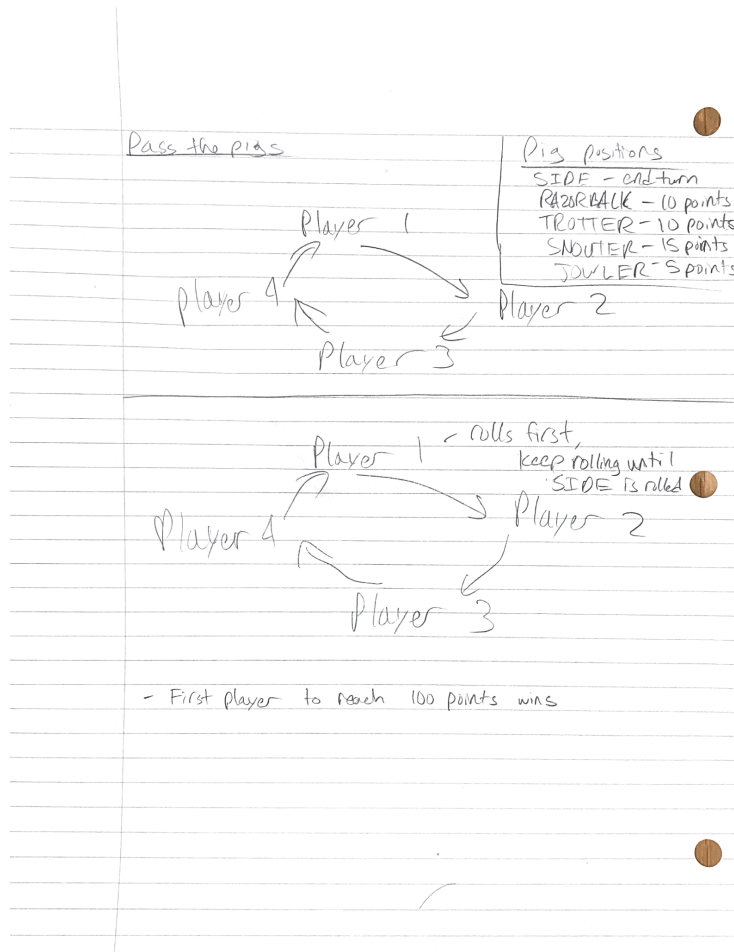 Pass the pigs
Pig positions
SIDE - end turn
RAZORBACK - 10 points
TROTTER - 10 points
SNOUTER - 15 points
JOWLER - 5 points
Player 1
Player 4
Player 2
Player 3
Player 1 - rolls first,
keep rolling until
SIDE is rolled
Player 2
Player 4
Player 3
- First player to reach 100 points wins